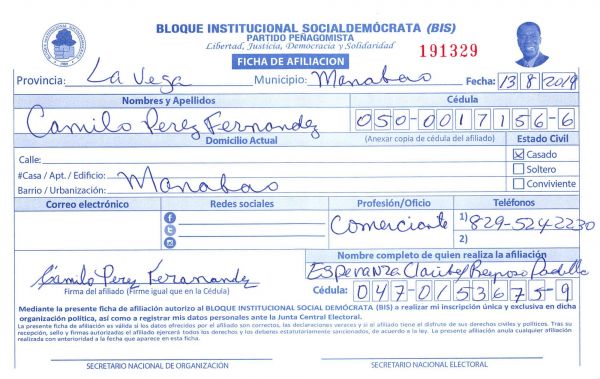 BLOQUE INSTITUCIONAL SOCIALDEMÓCRATA (BIS)
PARTIDO PEÑAGOMISTA
Libertad, Justicia, Democracia y Solidaridad
FICHA DE AFILIACION
191329
Provincia: La Vega Municipio: Manabao Fecha: 13/8/2019
Nombres y Apellidos Cédula
Camilo Perez Fernandez 050-0017156-6
Domicilio Actual (Anexar copia de cédula del afiliado) Estado Civil
Calle: Casado
#Casa / Apt. / Edificio: Soltero
Barrio / Urbanización: Manabao Conviviente
Correo electrónico Redes sociales Profesión/Oficio Teléfonos
Comerciante 1) 829-524-2230
2)
Nombre completo de quien realiza la afiliación
Camilo Perez Fernandez Esperanza Reynoso Padilla
Firma del afiliado (Firme igual que en la Cédula) Cédula: 047-0153675-9
Mediante la presente ficha de afiliación autorizo al BLOQUE INSTITUCIONAL SOCIAL DEMÓCRATA (BIS) a realizar mi inscripción única y exclusiva en dicha
organización política, así como a registrar mis datos personales ante la Junta Central Electoral.
La presente ficha de afiliación es válida si los datos ofrecidos por el afiliado son correctos, las declaraciones veraces y si el afiliado tiene el disfrute de sus derechos civiles y políticos. Tras su
recepción, sello y firmas autorizadas el afiliado ejercerá todos los derechos y los deberes estatutariamente sancionados, de acuerdo a la ley. La presente afiliación anula cualquier afiliación
realizada con anterioridad a la fecha que aparece en esta ficha.
SECRETARIO NACIONAL DE ORGANIZACIÓN SECRETARIO NACIONAL ELECTORAL